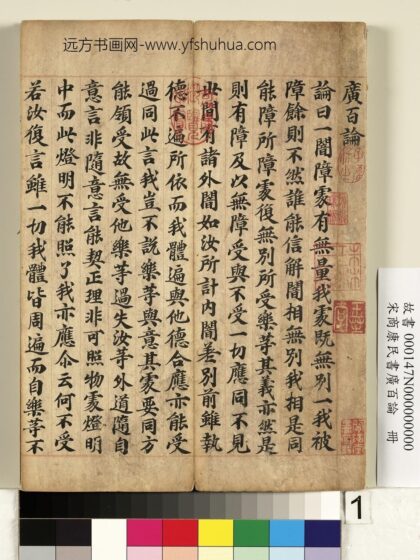 远方书画网-www.yfshuhua.com
廣百論
論曰一闇障處有無量我處既無別一我被
障餘則不然誰能信解闇相無別我相是同
能障所障處復無別所受樂等其義亦然是
則有障及以無障受與不受一切應同不見
世間有諸外闇如汝所計內闇差別前雖執
德不遍所依而我體遍與他德合應亦能受
過同此言我豈不說樂等與意其處要同方
能領受故無受他樂等過失汝等外道隨自
意言非隨意言能契正理非可照物處燈明
中而此燈明不能照了我亦應尒云何不受
若汝復言雖一切我體皆周遍而自樂等不
故書 00014700000000000
宋商康民書廣百論 冊
1